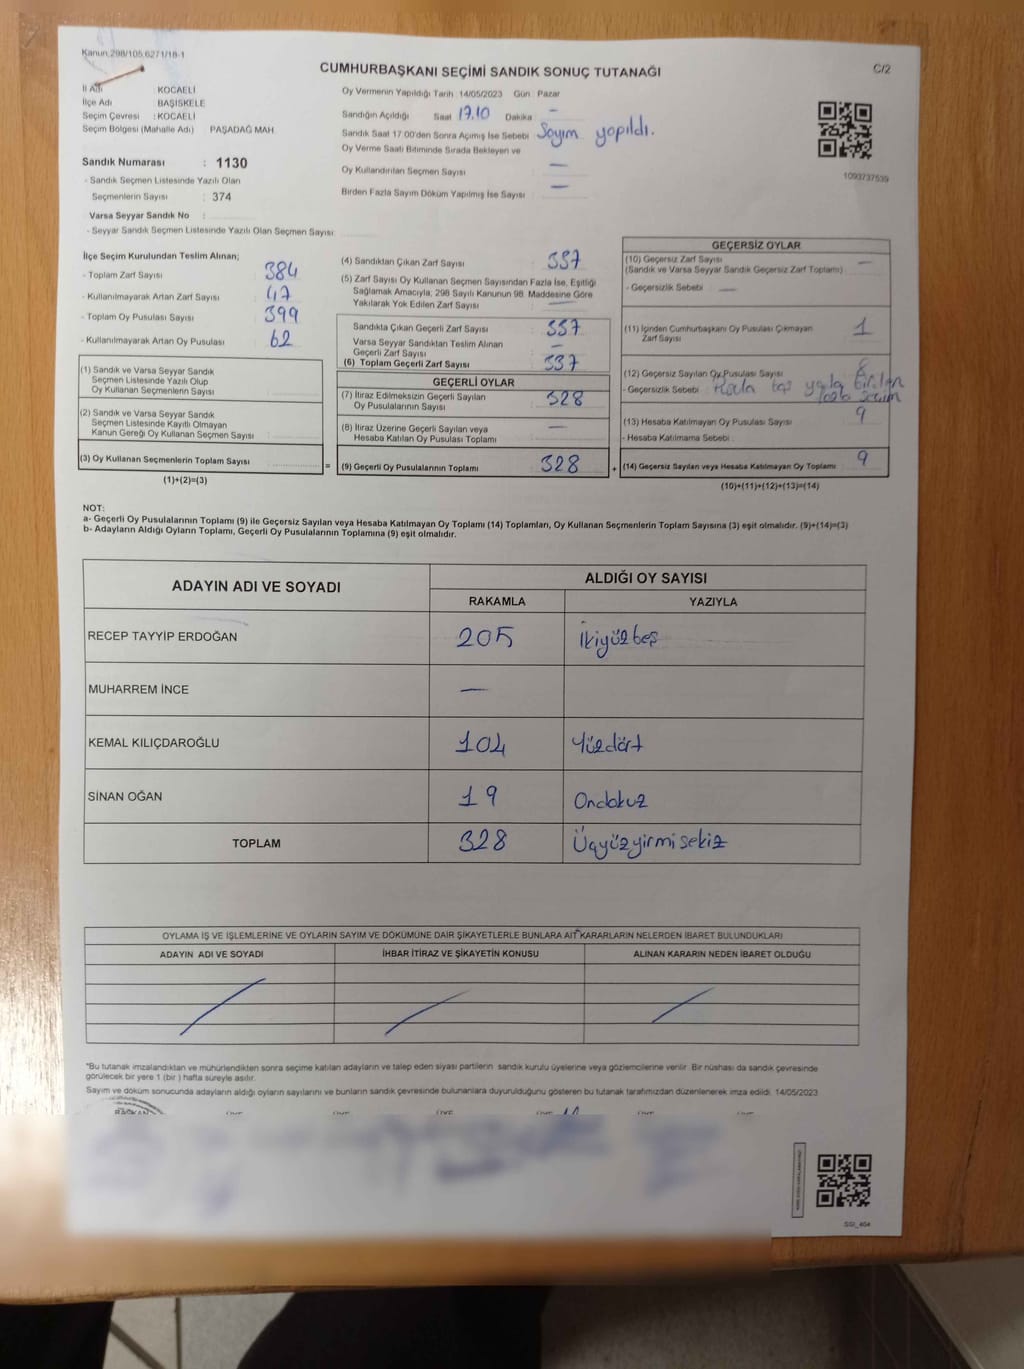 Kanun:298/105,6271/18-1
CUMHURBAŞKANI SEÇİMİ SANDIK SONUÇ TUTANAĞI
C/2
İl Adı KOCAELİ
İlçe Adı BAŞİSKELE
Seçim Çevresi : KOCAELİ
Seçim Bölgesi (Mahalle Adı) PAŞADAĞ MAH.
Sandık Numarası : 1130
- Sandık Seçmen Listesinde Yazılı Olan
Seçmenlerin Sayısı : 374
Varsa Seyyar Sandık No :
- Seyyar Sandık Seçmen Listesinde Yazılı Olan Seçmen Sayısı
Oy Vermenin Yapıldığı Tarih :14/05/2023 Gün : Pazar
Sandığın Açıldığı Saat 17.10 Dakika : —
Sandık Saat 17:00'den Sonra Açımış İse Sebebi : Sayım yapıldı.
Oy Verme Saati Bitiminde Sırada Bekleyen ve
Oy Kullandırılan Seçmen Sayısı —
Birden Fazla Sayım Döküm Yapılmış İse Sayısı —
1093737539
İlçe Seçim Kurulundan Teslim Alınan;
- Toplam Zarf Sayısı 384
- Kullanılmayarak Artan Zarf Sayısı 47
- Toplam Oy Pusulası Sayısı 399
- Kullanılmayarak Artan Oy Pusulası 62
(1) Sandık ve Varsa Seyyar Sandık
Seçmen Listesinde Yazılı Olup
Oy Kullanan Seçmenlerin Sayısı
(2) Sandık ve Varsa Seyyar Sandık
Seçmen Listesinde Kayıtlı Olmayan
Kanun Gereği Oy Kullanan Seçmen Sayısı
(3) Oy Kullanan Seçmenlerin Toplam Sayısı
(1)+(2)=(3)
(4) Sandıktan Çıkan Zarf Sayısı 337
(5) Zarf Sayısı Oy Kullanan Seçmen Sayısından Fazla İse, Eşitliği
Sağlamak Amacıyla, 298 Sayılı Kanunun 98. Maddesine Göre
Yakılarak Yok Edilen Zarf Sayısı —
Sandıkta Çıkan Geçerli Zarf Sayısı 337
Varsa Seyyar Sandıktan Teslim Alınan
Geçerli Zarf Sayısı —
(6) Toplam Geçerli Zarf Sayısı 337
GEÇERLİ OYLAR
(7) İtiraz Edilmeksizin Geçerli Sayılan
Oy Pusulasının Sayısı 328
(8) İtiraz Üzerine Geçerli Sayılan veya
Hesaba Katılan Oy Pusulası Toplamı —
= (9) Geçerli Oy Pusulalarının Toplamı 328
GEÇERSİZ OYLAR
(10) Geçersiz Zarf Sayısı —
(Sandık ve Varsa Seyyar Sandık Geçersiz Zarf Toplamı)
- Geçersizlik Sebebi : —
(11) İçinden Cumhurbaşkanı Oy Pusulası Çıkmayan
Zarf Sayısı 1
(12) Geçersiz Sayılan Oy Pusulası Sayısı 8
- Geçersizlik Sebebi : boş birden
fazla seçim
(13) Hesaba Katılmayan Oy Pusulası Sayısı 9
- Hesaba Katılmama Sebebi :
+ (14) Geçersiz Sayılan veya Hesaba Katılmayan Oy Toplamı 9
(10)+(11)+(12)+(13)=(14)
NOT:
a- Geçerli Oy Pusulalarının Toplamı (9) ile Geçersiz Sayılan veya Hesaba Katılmayan Oy Toplamı (14) Toplamları, Oy Kullanan Seçmenlerin Toplam Sayısına (3) eşit olmalıdır. (9)+(14)=(3)
b- Adayların Aldığı Oyların Toplamı, Geçerli Oy Pusulalarının Toplamına (9) eşit olmalıdır.
ADAYIN ADI VE SOYADI
ALDIĞI OY SAYISI
RAKAMLA YAZIYLA
RECEP TAYYİP ERDOĞAN 205 İkiyüzbeş
MUHARREM İNCE —
KEMAL KILIÇDAROĞLU 104 Yüzdört
SİNAN OĞAN 19 Ondokuz
TOPLAM 328 Üçyüzyirmisekiz
OYLAMA İŞ VE İŞLEMLERİNE VE OYLARIN SAYIM VE DÖKÜMÜNE DAİR ŞİKAYETLERLE BUNLARA AİT KARARLARIN NELERDEN İBARET BULUNDUKLARI
ADAYIN ADI VE SOYADI İHBAR İTİRAZ VE ŞİKAYETİN KONUSU ALINAN KARARIN NEDEN İBARET OLDUĞU
*Bu tutanak imzalandıktan ve mühürlendikten sonra seçime katılan adayların ve talep eden siyasi partilerin sandık kurulu üyelerine veya gözlemcilerine verilir. Bir nüshası da sandık çevresinde
görülecek bir yere 1 (bir ) hafta süreyle asılır.
Sayım ve döküm sonucunda adayların aldığı oyların sayılarını ve bunların sandık çevresinde bulunanlara duyurulduğunu gösteren bu tutanak tarafımızdan düzenlenerek imza edildi. 14/05/2023
BAŞKAN ÜYE ÜYE ÜYE ÜYE ÜYE ÜYE
SSİ_464